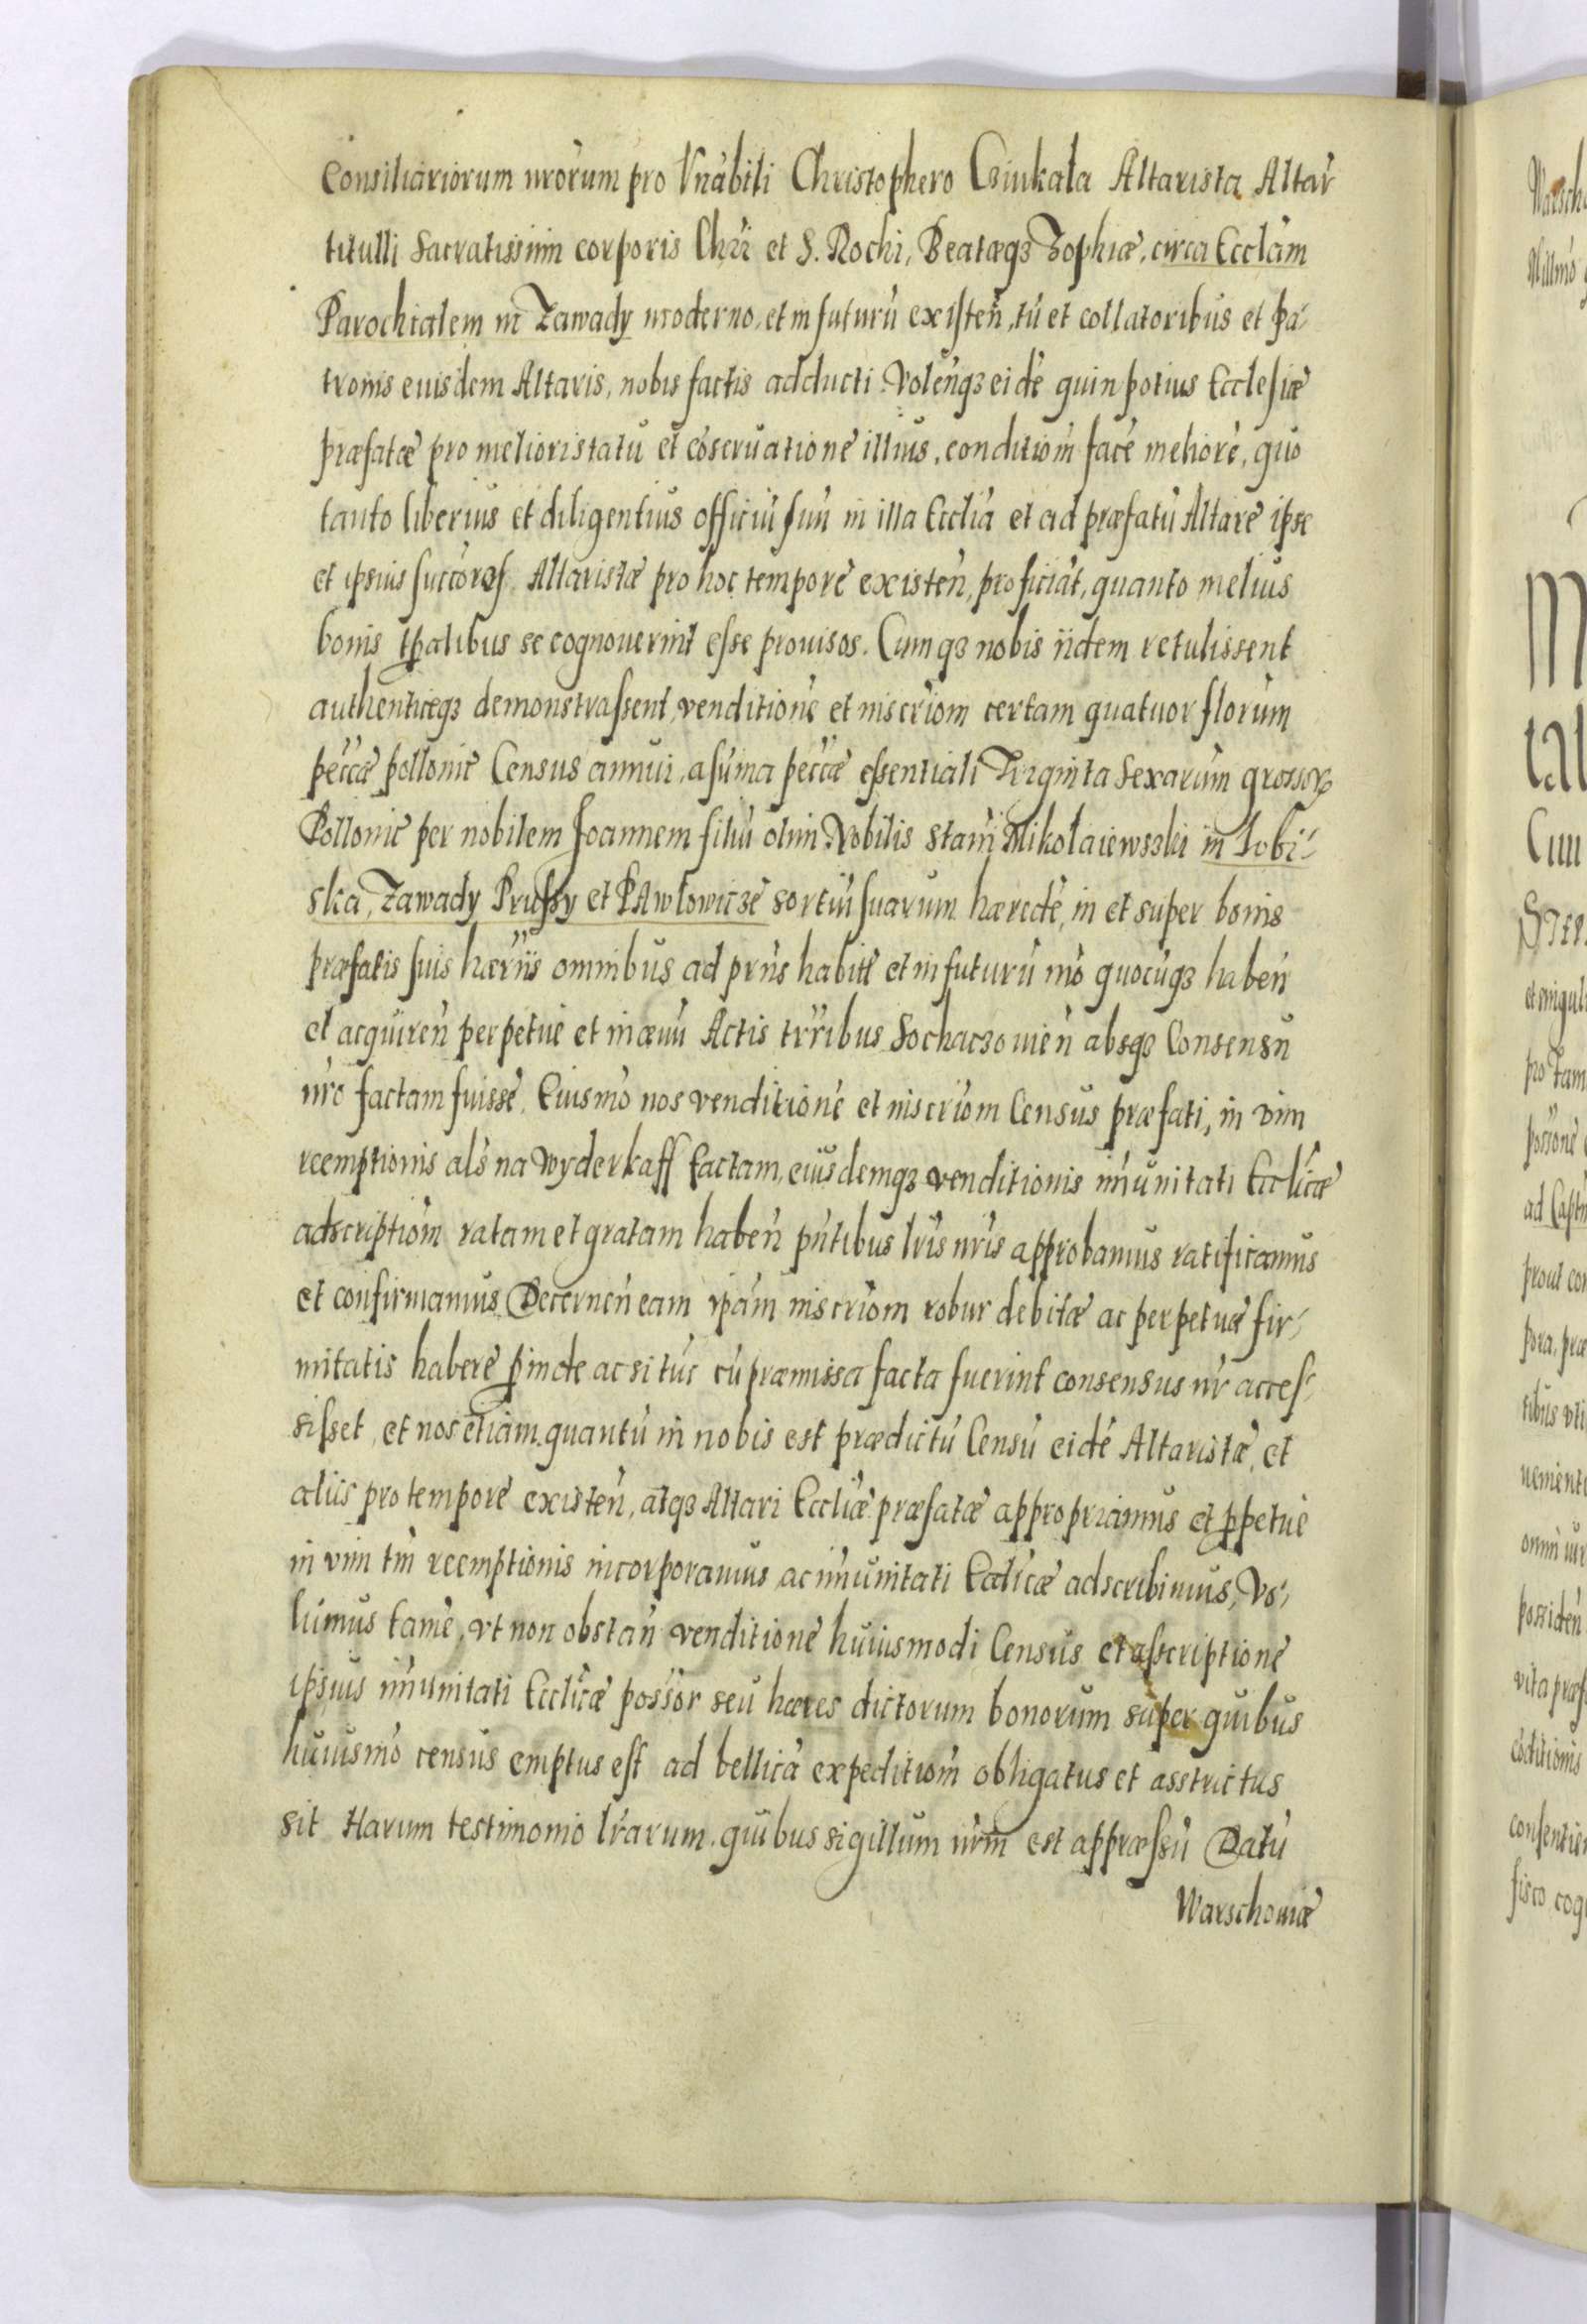 Consiliariorum nrorum pro Vnabili Christophero Cziukała Altarista Altar
titulli Sacratissimi corporis Chri et S. Rochi, Beatæqз Zophiæ, circa Ecclam
Parochialem in Zawady moderno, et in futurū existen, tū et collatoribus et pa-
tronis euisdem Altaris, nobis factis adducti. Volenqз eidē quin potius Ecclesiæ
præfatæ pro melioristatu et cōseruatione illius, conditiom facē meliorē, quo
tanto liberius et diligentius officiū suū in illa Ecclia et ad præfatū Altare ipse
et ipsius succores Altaristæ pro hoc tempore existen, proficiāt, quanto melius
bonis tpalibus se cognouerint esse prouisos. Cumqз nobis iidem retulissent
authenticeqз demonstrassent, venditione et inscriom certam quatuor florum
peccæ pollonic Census annui, a sūma peccæ essentiali Trigintā Sexarum grossoꝝ
Pollonic per nobilem Joannem filiū olim Nobilis Stani Mikołaiewszki in Łobi-
ska, Zawady Prussy et PAwłowicze sortiū suarum hæredē, in et super bonis
præfatis suis hæriis omnibus ad prns habitł et in futurū mō quocūqз haben
et acquiren perpetue et in æuū Actis trribus Sochaczouien absqз Consensu
nro factam fuisse. Eiusmō nos venditione et inscriom Census præfati, in vim
reemptionis als na wyderkaff factam, eiusdemqз venditionis imunitati Ecclicæ
adscriptiom ratam et gratam haben pntibus lris nris approbamus ratificamus
et confirmamus, Decernen eam ipam inscriom robur debitæ ac perpetuæ fir-
mitatis habere pinde ac si tūc cū præmissa facta fuerint consensus nr acces-
sisset, et nos etiam quantū in nobis est prædictū Censū eidē Altaristæ, et
aliis pro tempore existen, atqз Altari Eccliæ præfatæ appropriamus et ppetue
in vim tm reemptionis incorporamus, ac imunitati Ecclicæ adscribimus, Vo-
lumus tamē, vt non obstan venditione huiusmodi Census et asscriptione
ipsius imunitati Ecclicæ possor seu hæres dictorum bonorum super quibus
huiusmō census emptus est ad bellicā expeditiom obligatus et asstrictus
sit Harum testimonio lrarum, quibus sigillum nrm est appræssū Datū
Warschouiæ